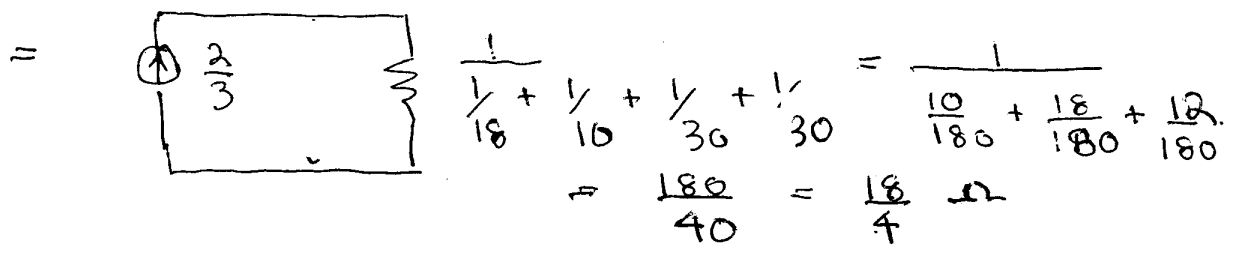 = 2/3 1/(1/18 + 1/10 + 1/30 + 1/30) = 1/(10/180 + 18/180 + 12/180)
= 180/40 = 18/4 Ω